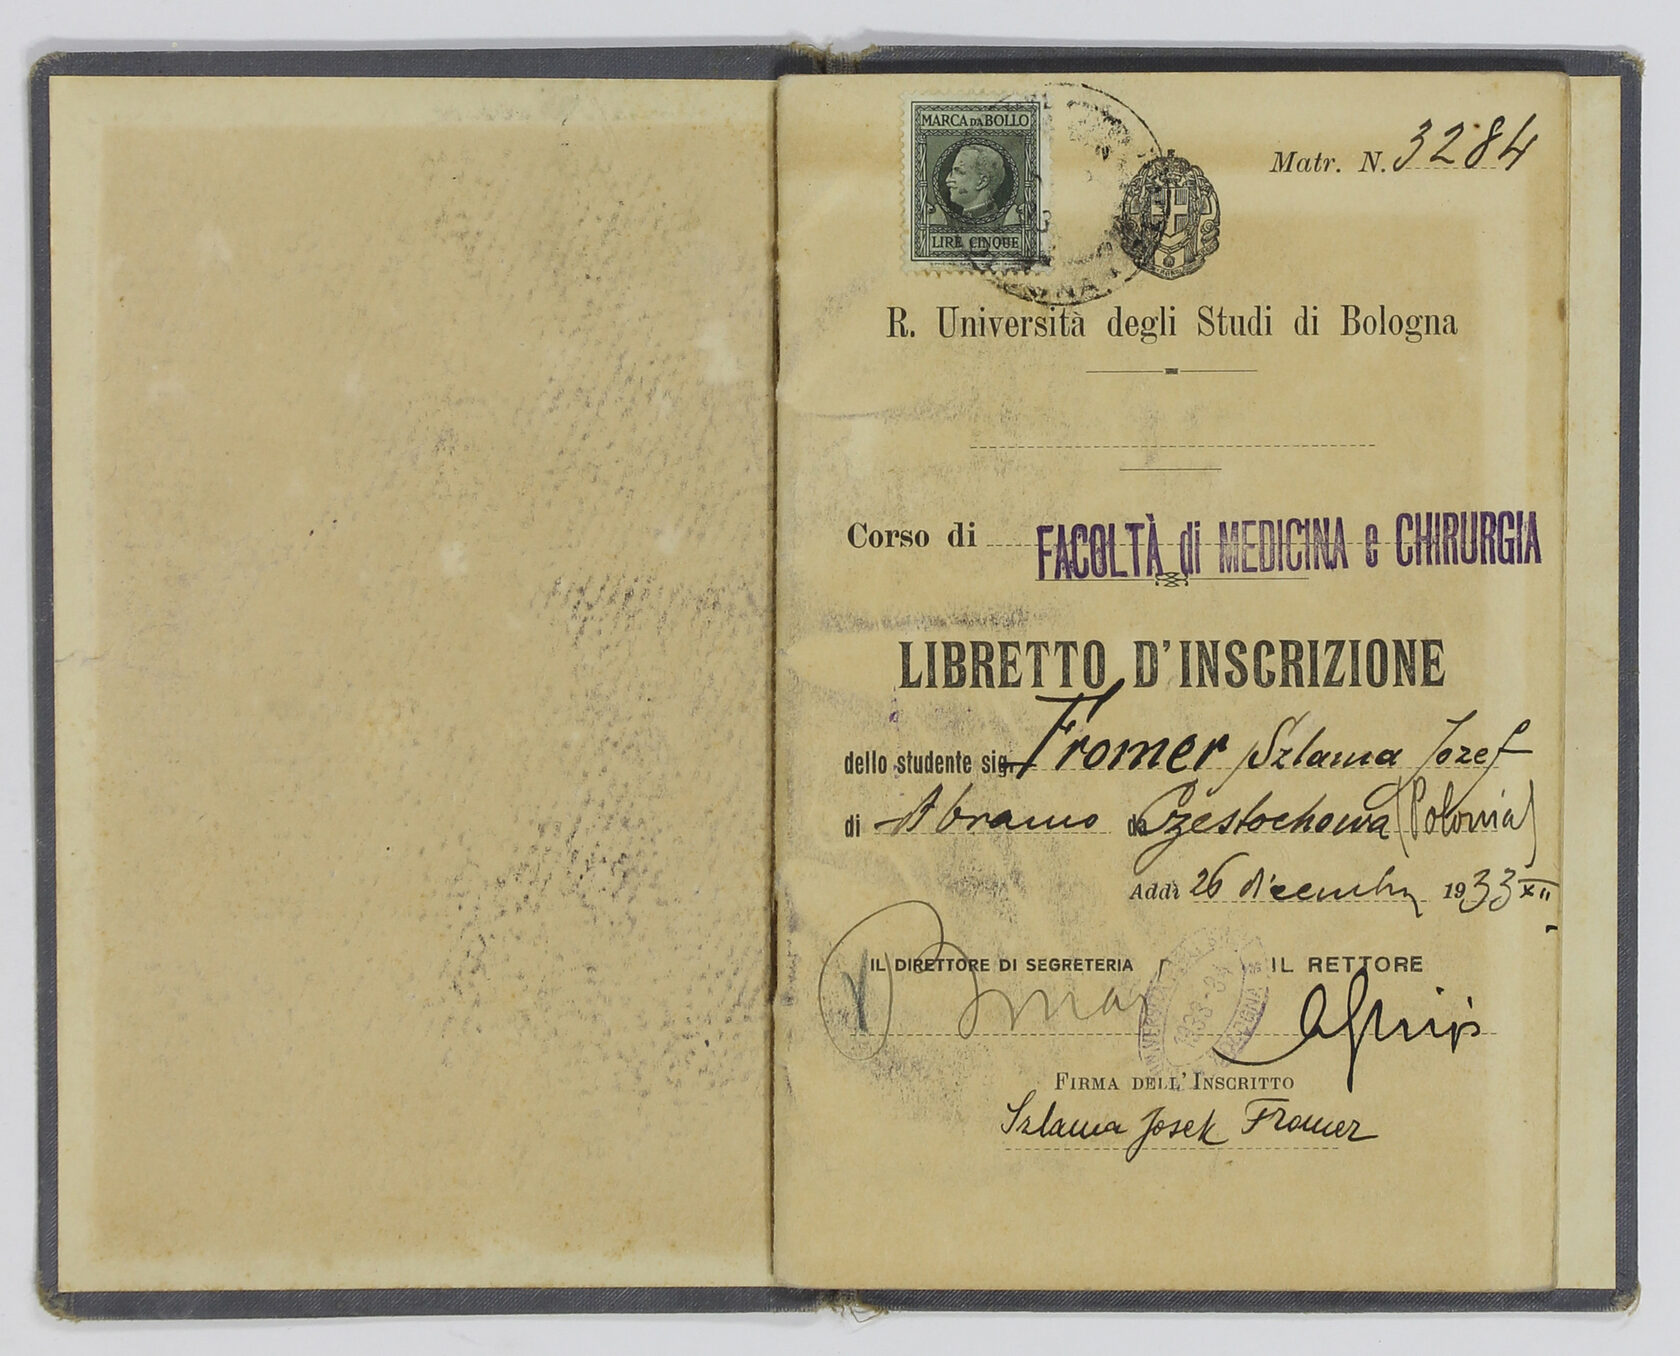 MARCA DA BOLLO
LIRE CINQUE
Matr. N. 3284
R. Università degli Studi di Bologna
Corso di FACOLTÀ di MEDICINA e CHIRURGIA
LIBRETTO D'INSCRIZIONE
dello studente sig. Fromer Szlama Jozef
di Abramo da Częstochowa (Polonia)
Addì 26 dicembre 1933 XII
IL DIRETTORE DI SEGRETERIA
IL RETTORE
FIRMA DELL'INSCRITTO
Szlama Josek Fromer